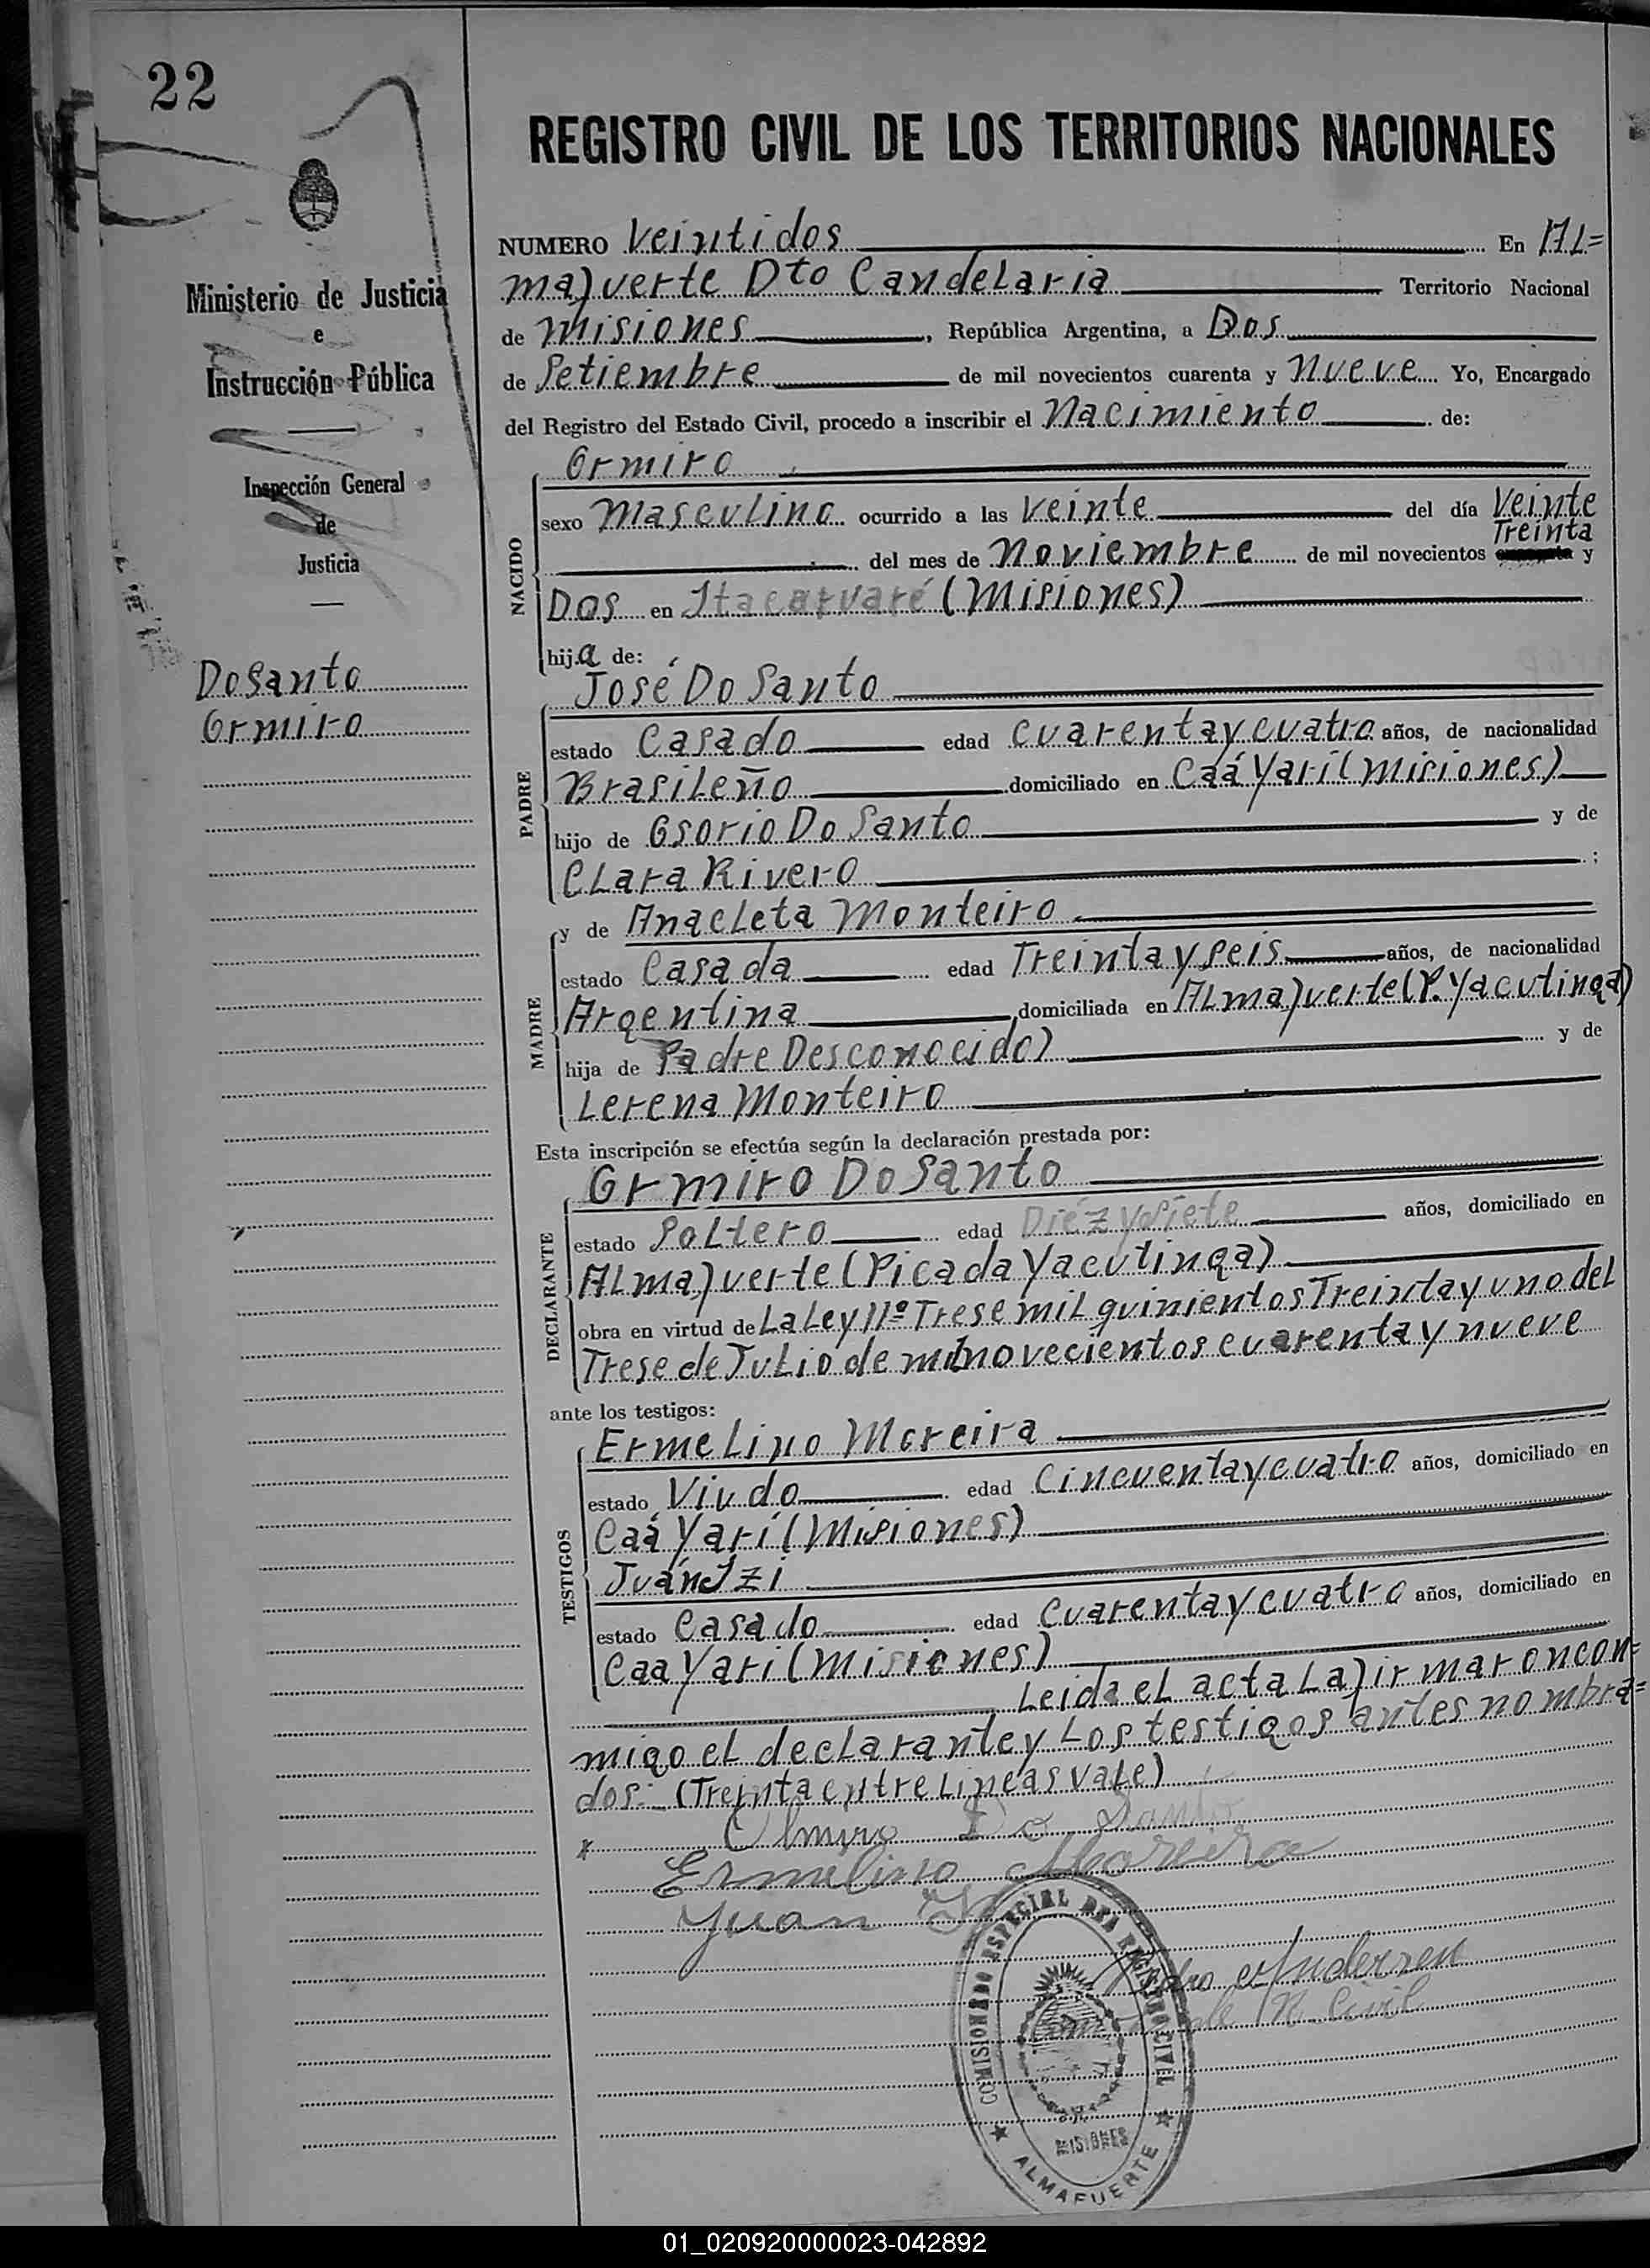 22
REGISTRO CIVIL DE LOS TERRITORIOS NACIONALES
Ministerio de Justicia
e
Instrucción Pública
Inspección General
de
Justicia
DoSanto
Ormiro
NUMERO Veintidos En AL=
mafuerte Dto Candelaria Territorio Nacional
de Misiones, República Argentina, a Dos
de Setiembre de mil novecientos cuarenta y Nueve Yo, Encargado
del Registro del Estado Civil, procedo a inscribir el Nacimiento de:
NACIDO
Ormiro
sexo Masculino ocurrido a las Veinte del día Veinte
Treinta
del mes de Noviembre de mil novecientos y
Dos en Itacaruaré (Misiones)
hija de:
PADRE
José Do Santo
estado Casado edad Cuarenta y cuatro años, de nacionalidad
Brasileño domiciliado en Caá Yarí (Misiones)
hijo de Osorio Do Santo y de
Clara Rivero ;
MADRE
y de Anacleta Monteiro
estado Casada edad Treinta y seis años, de nacionalidad
Argentina domiciliada en Almafuerte (P. Yacutinga)
hija de Padre Desconocido) y de
Lerena Monteiro
Esta inscripción se efectúa según la declaración prestada por:
DECLARANTE
Ormiro DoSanto
estado Soltero edad Diéz y Siete años, domiciliado en
Almafuerte (Picada Yacutinga)
obra en virtud de La Ley Nº Trese mil quinientos Treinta y uno del
Trese de Julio de mil novecientos cuarenta y nueve
ante los testigos:
TESTIGOS
Ermelino Moreira
estado Viudo edad Cincuenta y cuatro años, domiciliado en
Caá Yarí (Misiones)
Juán Izi
estado Casado edad Cuarenta y cuatro años, domiciliado en
Caa Yari (Misiones)
Leida el acta La firmaron con=
migo el declarante y Los testigos antes nombra=
dos: (Treinta entre Lineas vale)
x Olmiro Do Santo
Ermelino Moreira
Juan
Pedro Anderzen
de R. Civil
COMISIONADO ESPECIAL DEL REGISTRO CIVIL
MISIONES
ALMAFUERTE
01_020920000023-042892